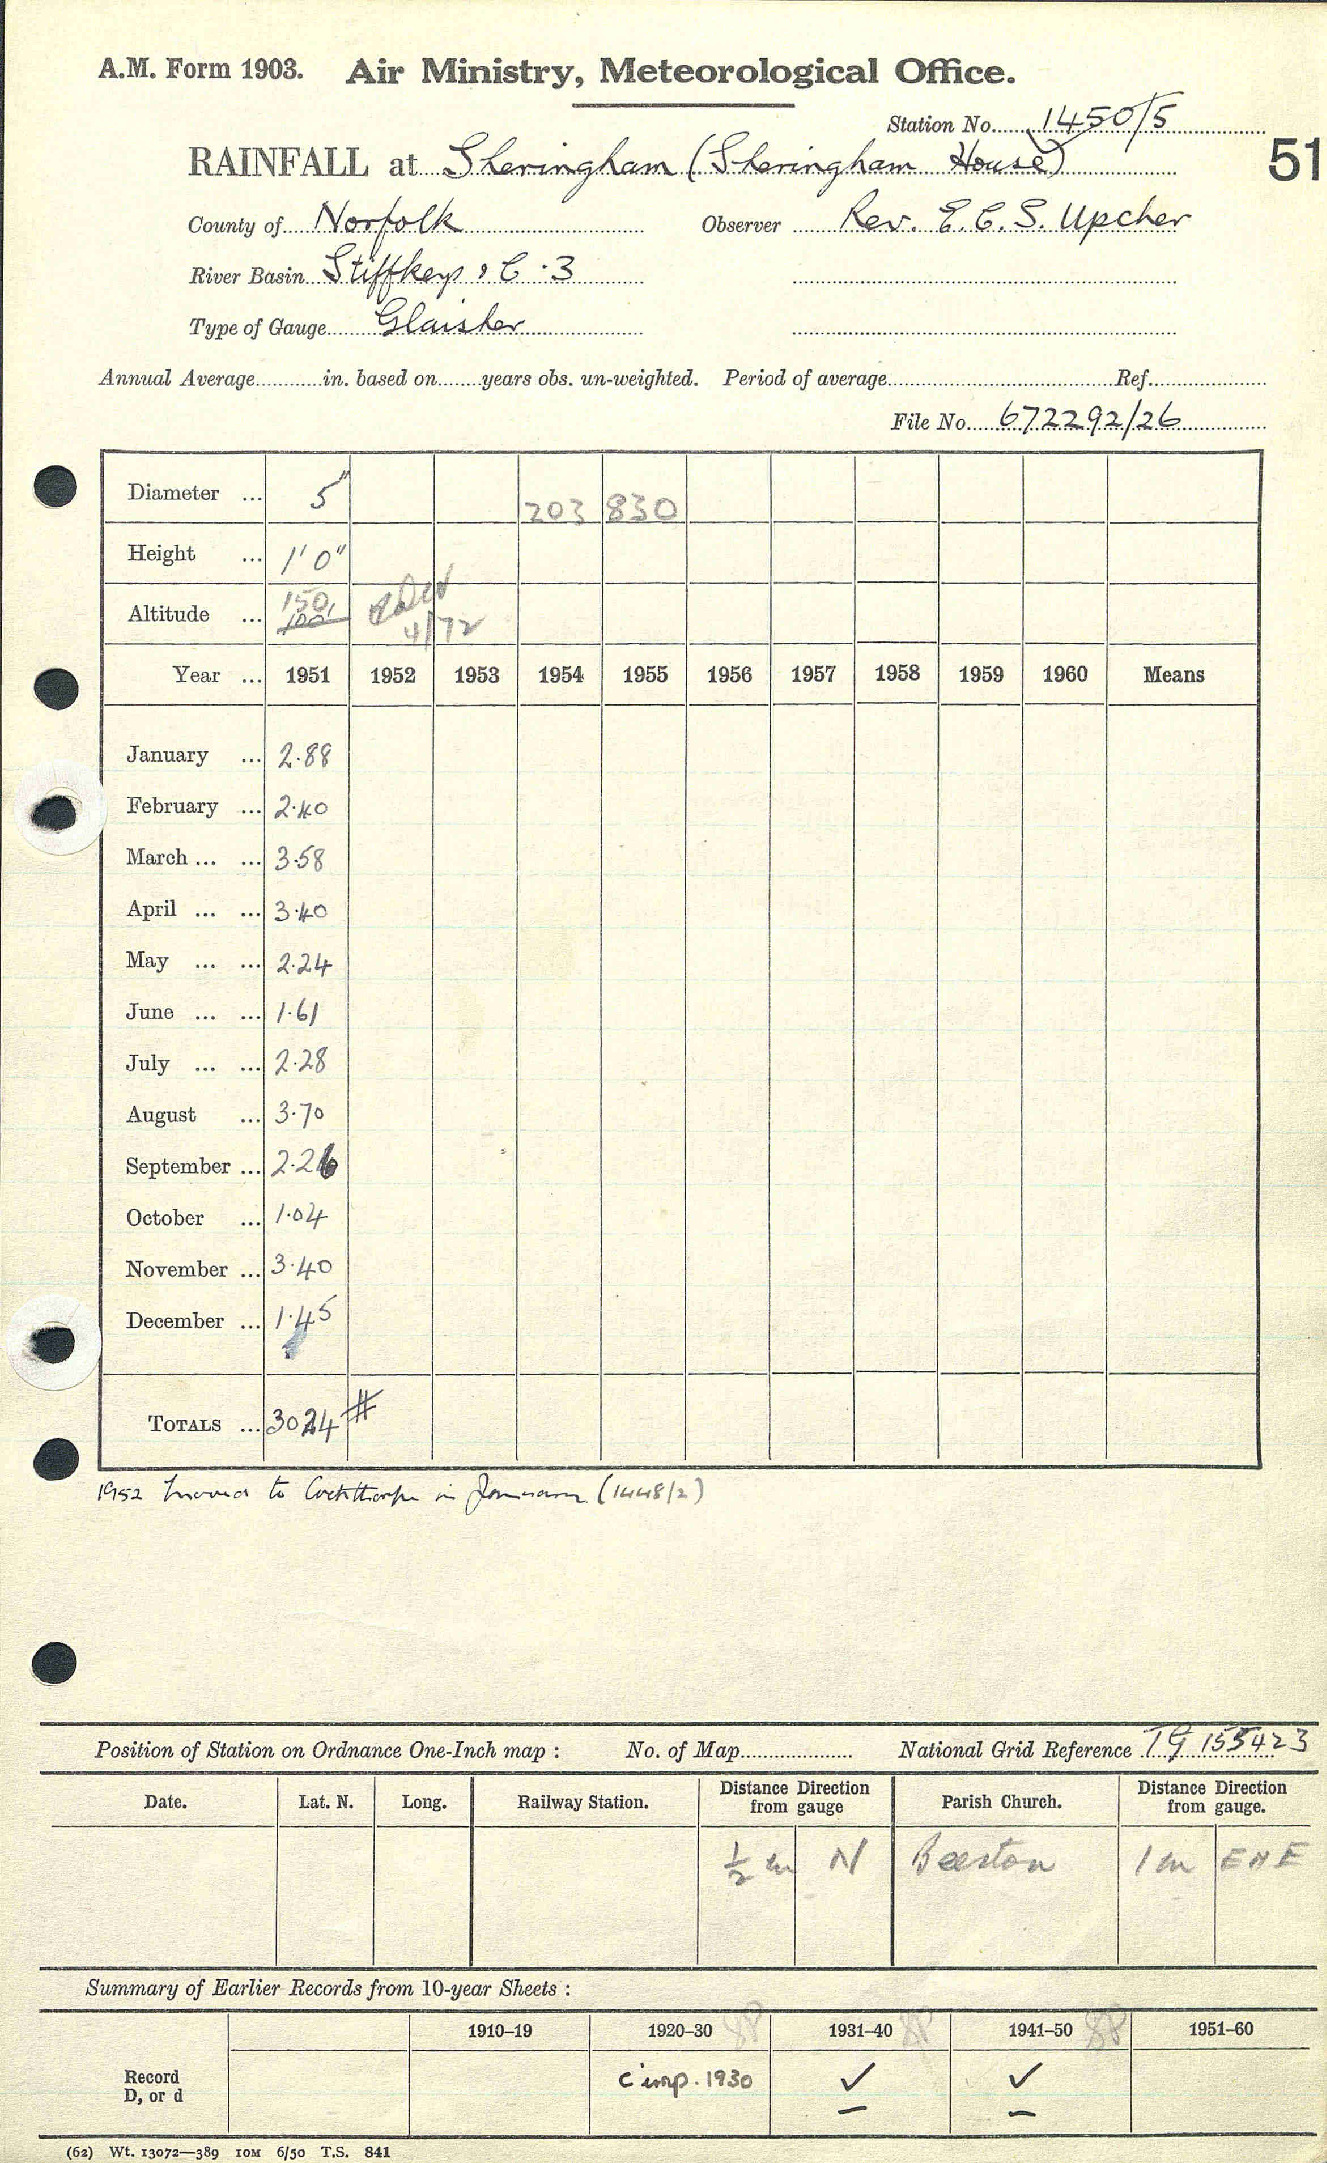 A.M. Form 1903. Air Ministry, Meteorological Office.
Station No. 1450/5
RAINFALL at Sheringham (Sheringham House)
51
County of Norfolk Observer Rev. E.C.S. Upcher
River Basin Stiffkey & C. 3
Type of Gauge Glaisher
Annual Average in. based on years obs. un-weighted. Period of average Ref.
File No. 672292/26
Diameter ... 5" 203 830
Height ... 1' 0"
Altitude ... 150 100
4/72
Year ... 1951 1952 1953 1954 1955 1956 1957 1958 1959 1960 Means
January ... 2.88
February ... 2.40
March ... ... 3.58
April ... ... 3.40
May ... ... 2.24
June ... ... 1.61
July ... ... 2.28
August ... 3.70
September ... 2.26
October ... 1.04
November ... 3.40
December ... 1.45
TOTALS ... 30 24 #
1952 Moved to Cockthorpe in January (1448/2)
Position of Station on Ordnance One-Inch map : No. of Map National Grid Reference TG 155423
Date. Lat. N. Long. Railway Station. Distance Direction from gauge Parish Church. Distance Direction from gauge.
½ m N Beeston 1 m ENE
Summary of Earlier Records from 10-year Sheets :
1910–19 1920–30 1931–40 1941–50 1951–60
Record D, or d c'mp. 1930 ✓ ✓
(62) Wt. 13072—389 10M 6/50 T.S. 841